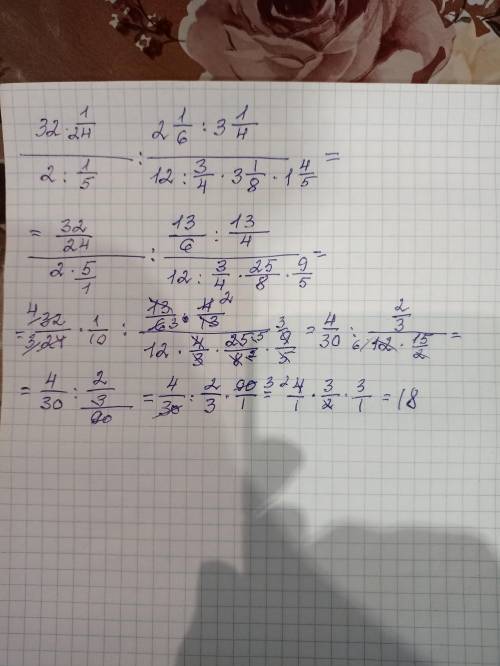 32 · 1/24 / 2 : 1/5 : 2 1/6 : 3 1/4 / 12 : 3/4 · 3 1/8 · 1 4/5 =
= 32/24 / 2 · 5/1 : 13/6 : 13/4 / 12 : 3/4 · 25/8 · 9/5 =
= 4 32/3 24 · 1/10 : 13/6 3 · 4 2/13 / 12 · 4/3 · 25 5/8 2 · 3 9/5 = 4/30 : 2/3 / 6 12 · 15/2 =
= 4/30 : 2/3 / 90 = 4/30 : 2/3 · 90 3/1 = 2 4/1 · 3/2 · 3/1 = 18